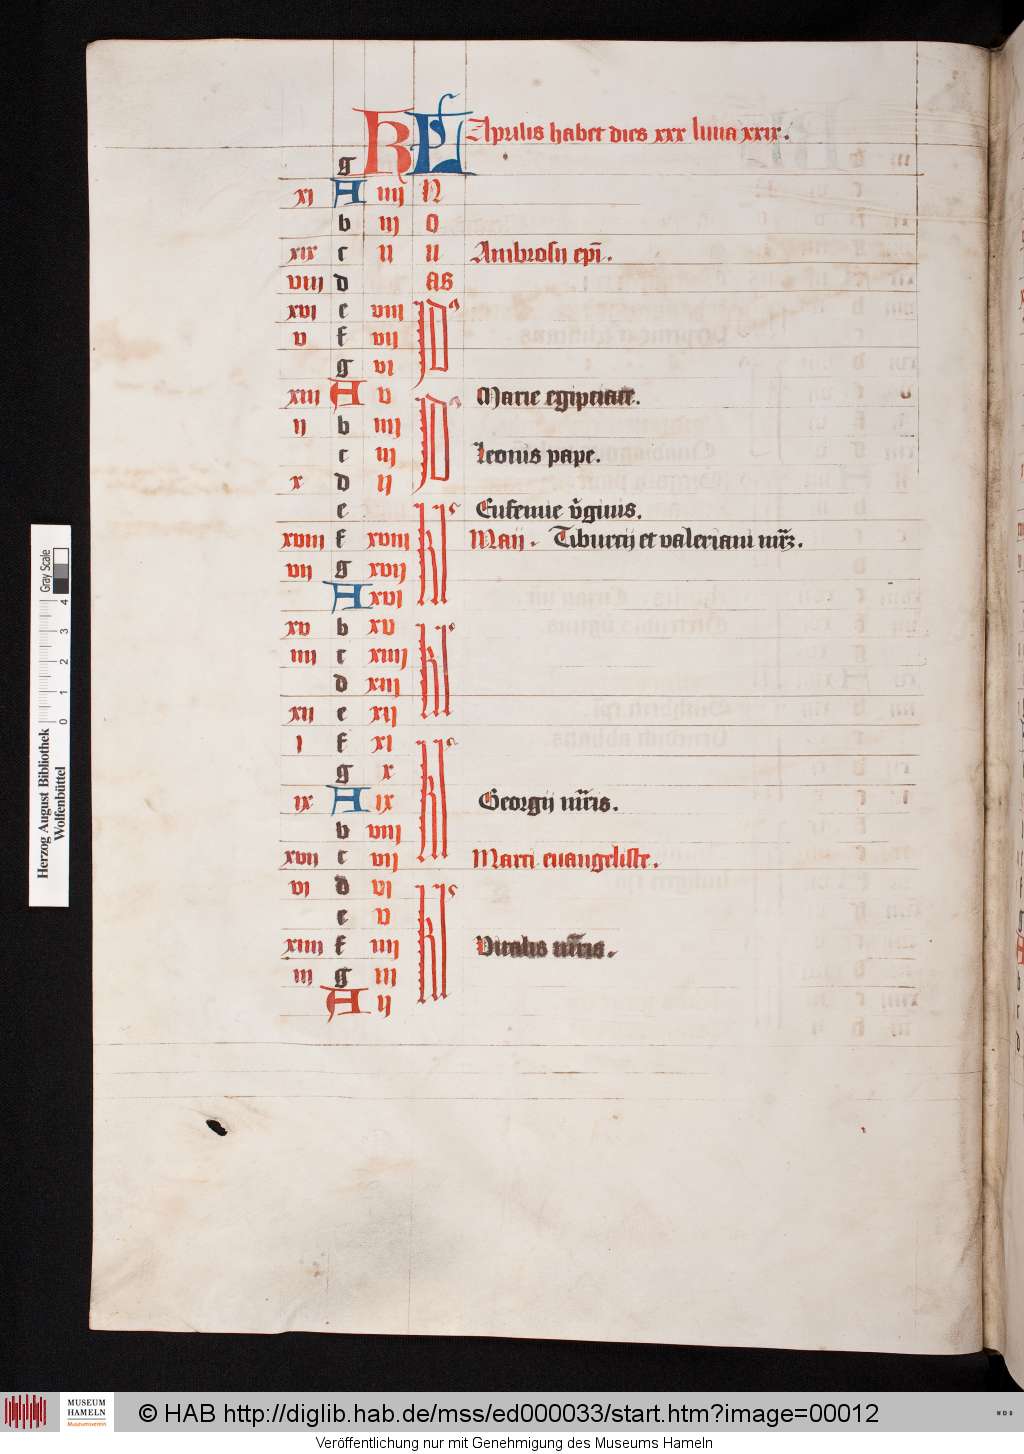 KL Aprilis habet dies xxx luna xxix.
g
xi A iiij N
b iij o
xix c ij n Ambrosij epi.
viij d as
xvi e viij Id9
v f vij
g vi
xiij A v Id9 Marie egiptiace.
ij b iiij
c iij Leonis pape.
x d ij
e Eufemie v̾ginis.
xviij f xviij kl Maij. Tiburtij et valeriani mr̃.
vij g xvij
A xvi
xv b xv kl
iiij c xiiij
d xiij
xij e xij
i f xi kl
g x
ix A ix Georgij mr̃is.
b viij
xvij c vij Marci euangeliste.
vi d vi kl
e v
xiiij f iiij Vitalis mr̃is.
iij g iij
A ij
Gray Scale
0 1 2 3 4
Herzog August Bibliothek
Wolfenbüttel
MUSEUM
HAMELN
Museumsverein
© HAB http://diglib.hab.de/mss/ed000033/start.htm?image=00012
Veröffentlichung nur mit Genehmigung des Museums Hameln